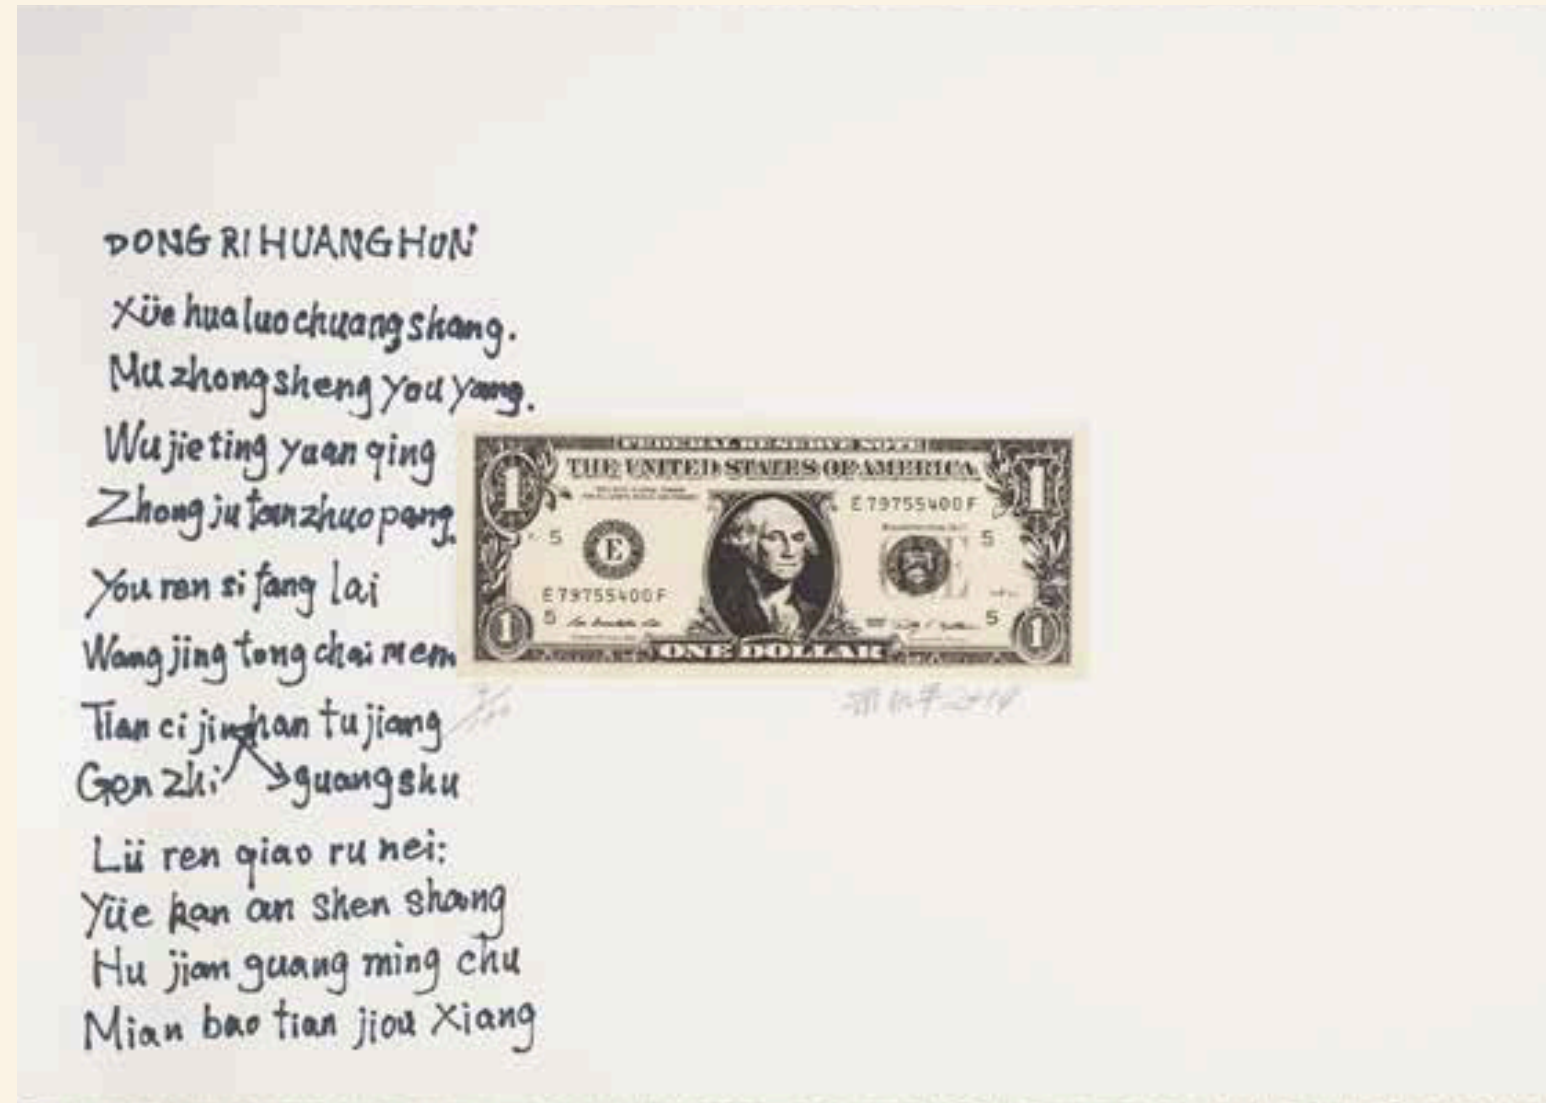 DONG RI HUANG HUN
Xüe hua luo chuang shang.
Mu zhong sheng you yang.
Wu jie ting yuan qing
Zhong ju tan zhuo pang.
You ren si fang lai
Wang jing tong chai mem
Tian ci jin han tu jiang
Gen zhi guang shu
Lü ren qiao ru nei:
Yüe kan an shen shang
Hu jian guang ming chu
Mian bao tian jiou xiang
FEDERAL RESERVE NOTE
THE UNITED STATES OF AMERICA
E 79755400 F
5 5
E
E 79755400 F
5 5
1 1 1 1
ONE DOLLAR
2014